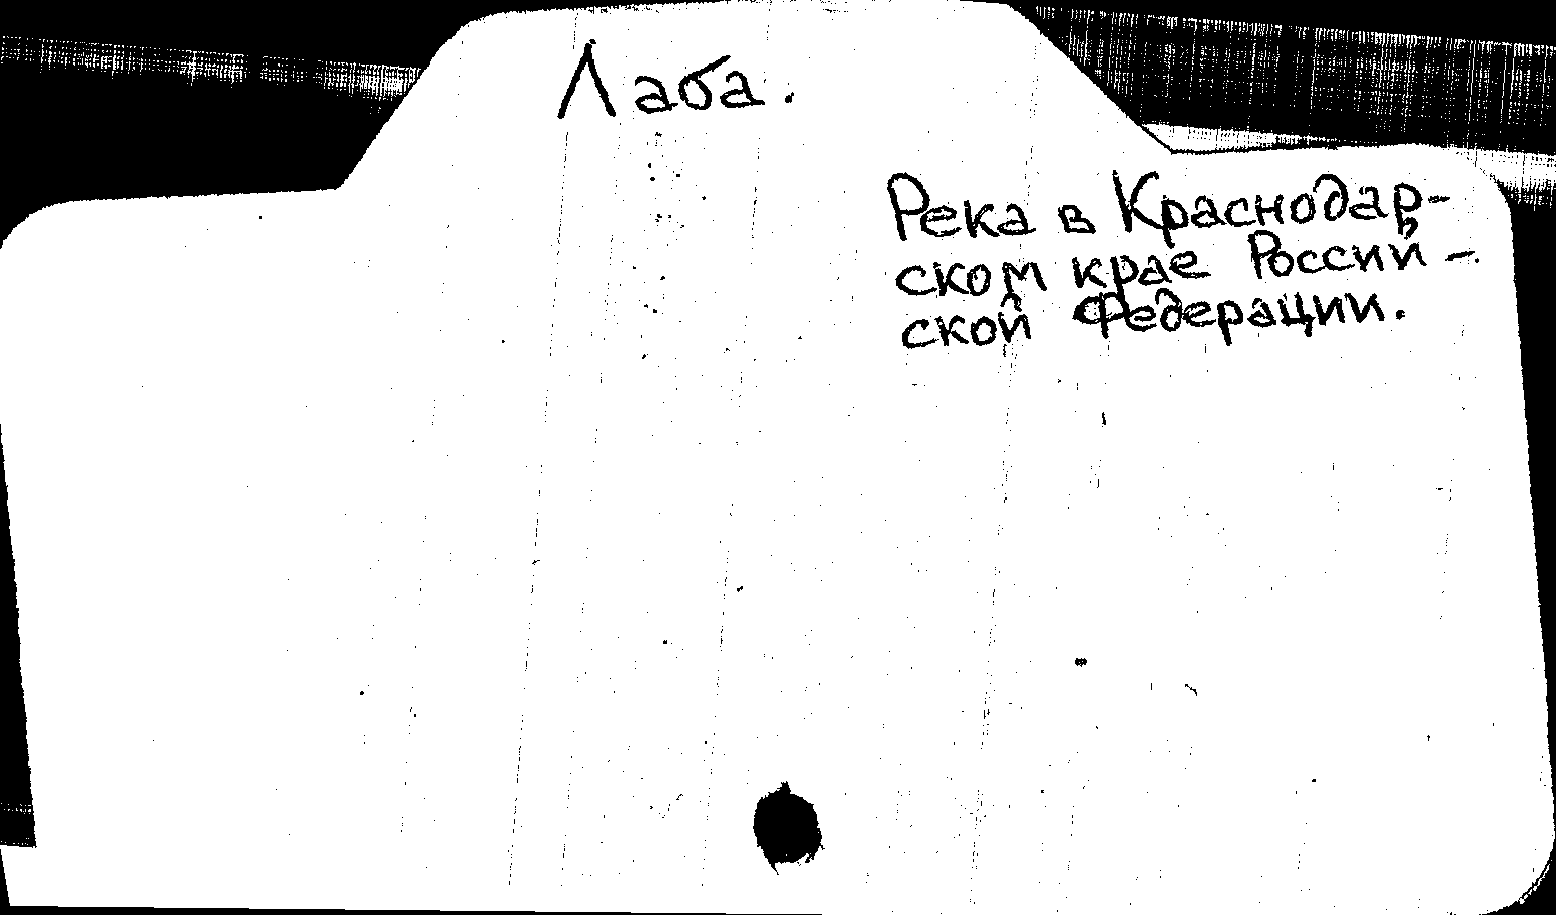 Лаба.
Река в Краснодар-
ском крае Россий-
ской Федерации.